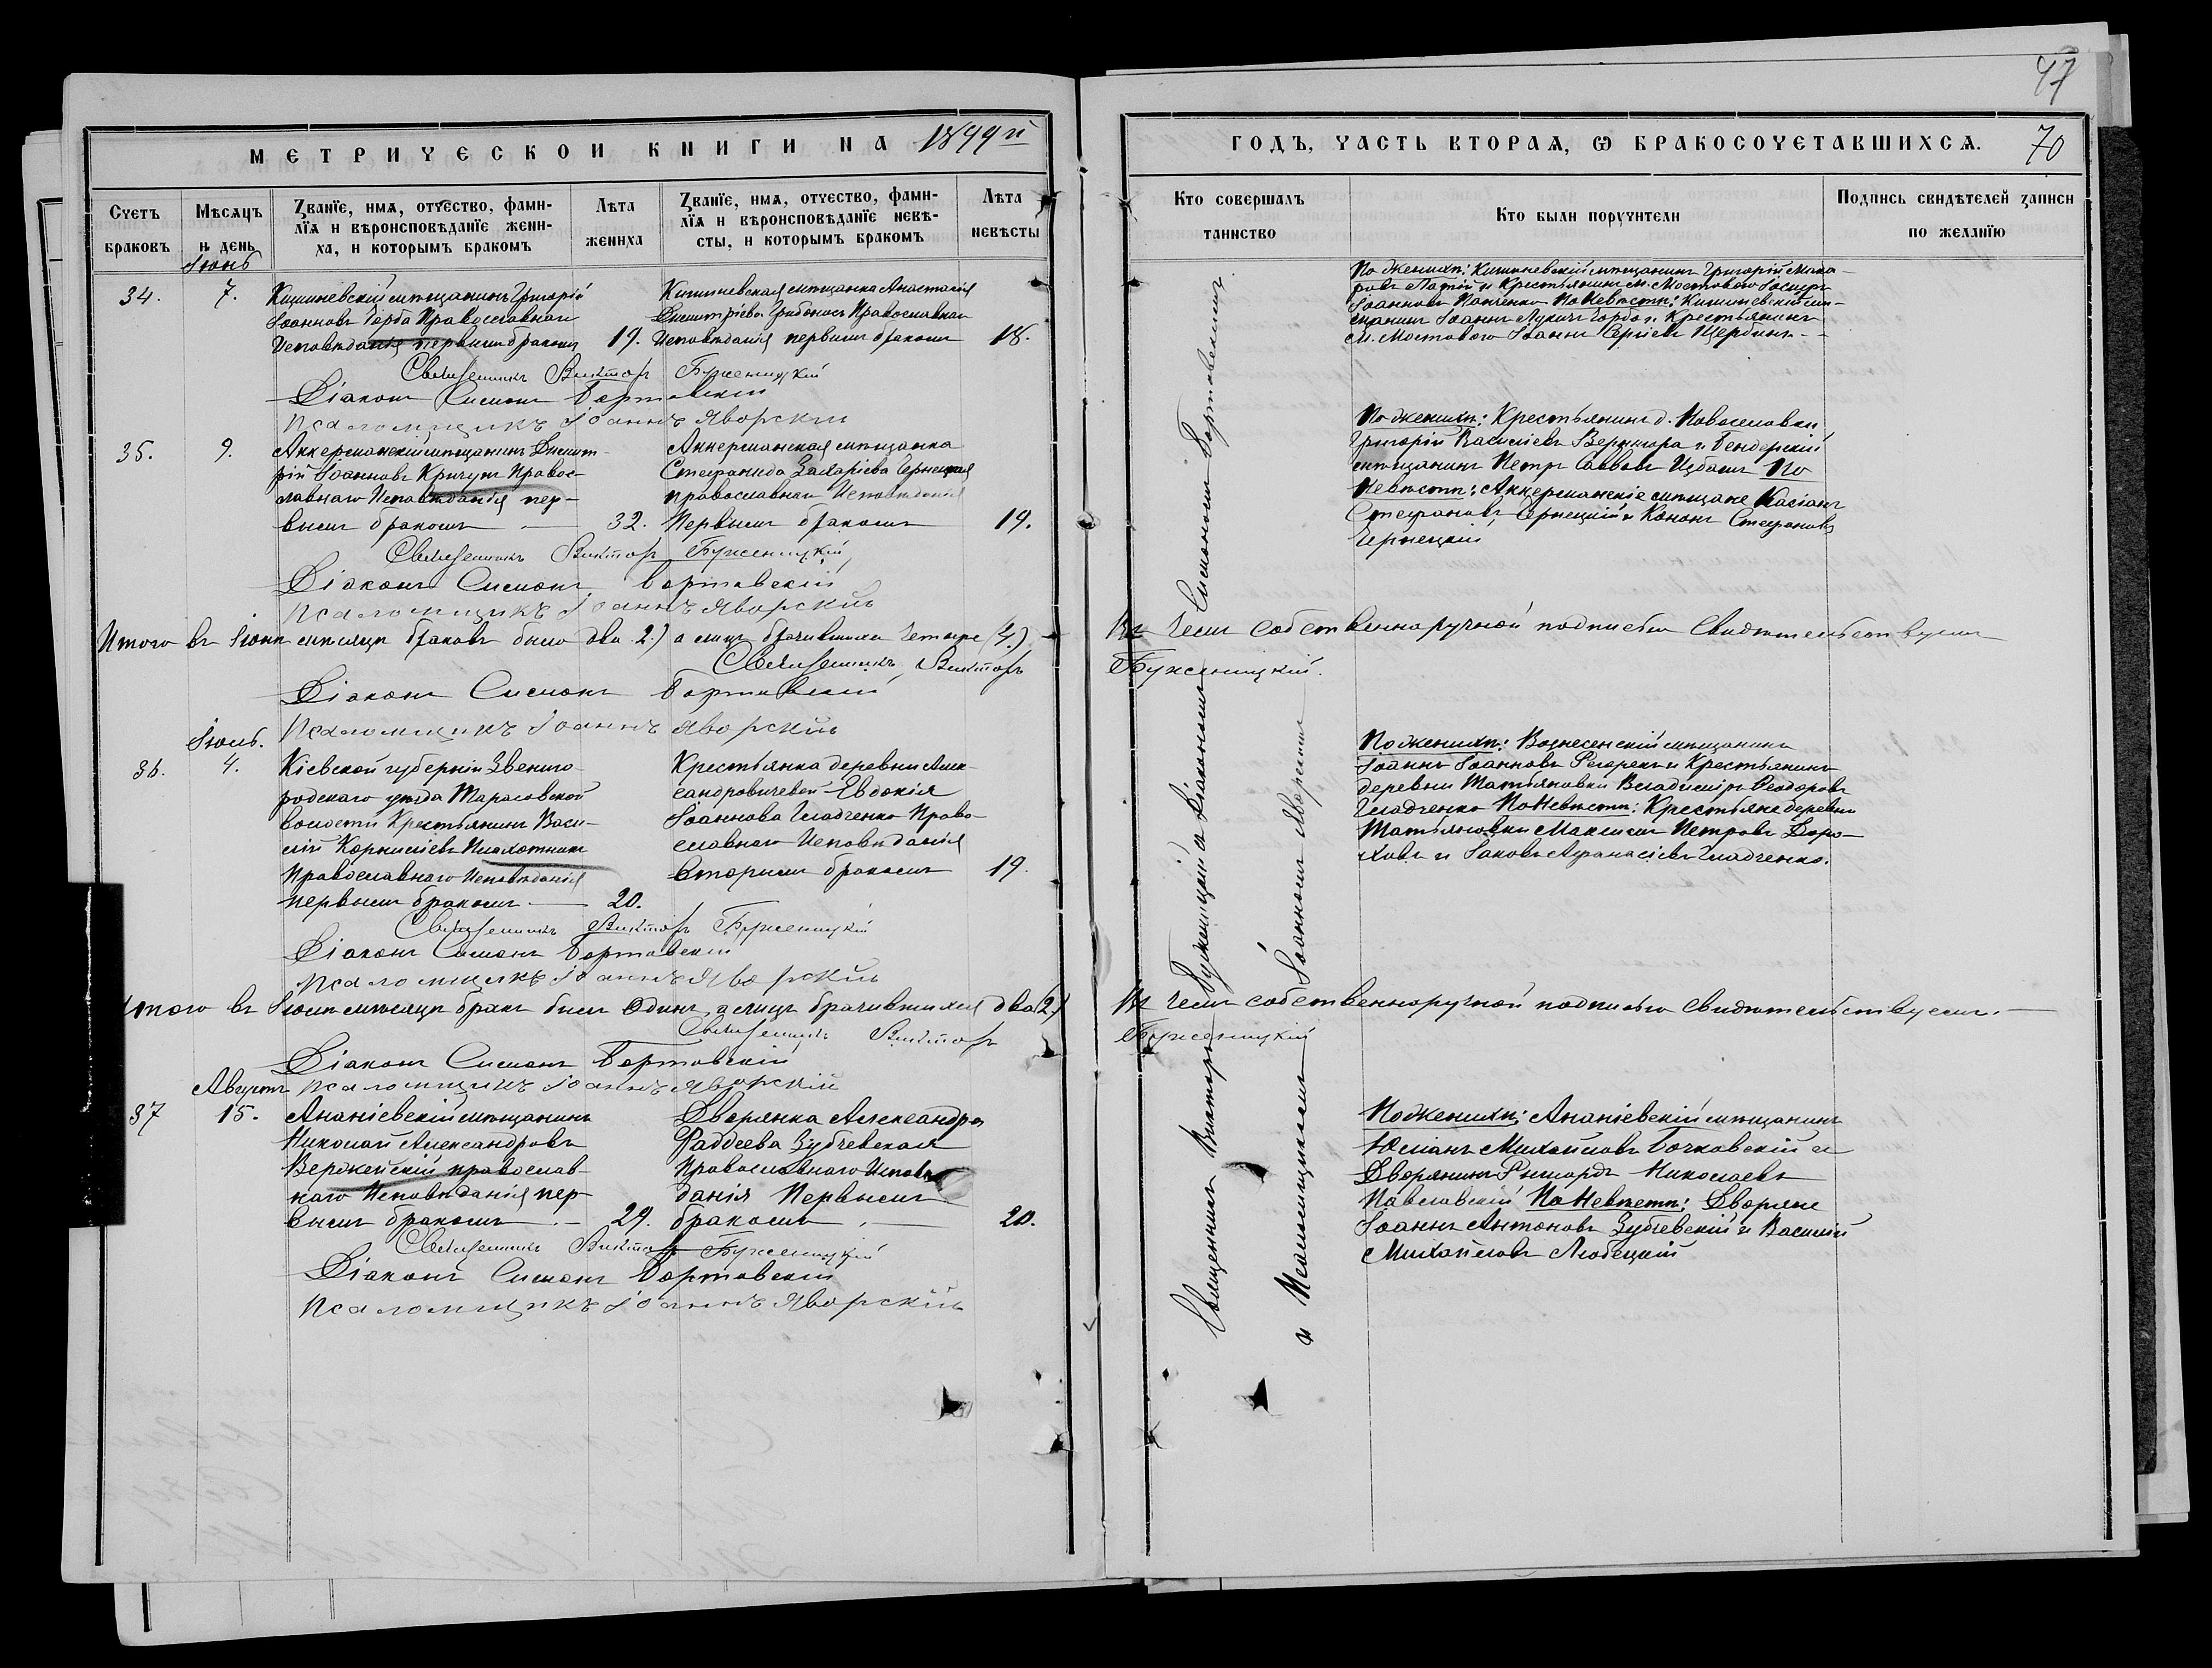 47
МЕТРИЧЕСКОЙ КНИГИ НА 1899й
ГОДЪ, ЧАСТЬ ВТОРАѦ, Ѿ БРАКОСОЧЕТАВШИХСѦ.
70
Счетъ браковъ
Мѣсѧцъ и день
Званїе, имѧ, отчество, фами-
лїѧ и вѣроисповѣданїе жени-
ха, и которымъ бракомъ
Лѣта жениха
Званїе, имѧ, отчество, фами-
лїѧ и вѣроисповѣданїе невѣ-
сты, и которымъ бракомъ
Лѣта невѣсты
Кто совершалъ таинство
Кто были поручители
Подпись свидѣтелей записи по желанїю
Іюнь
34.
7.
Кишиневскій мѣщанинъ Григорій
Іоанновъ Горба Православнаго
Исповѣданія первымъ бракомъ
19.
Кишиневская мѣщанка Анастасія
Димитріева Православнаго
Исповѣданія первымъ бракомъ
18.
По женихѣ: Кишиневскій мѣщанинъ Григорій Мака-
ровъ и Крестьянинъ м. Мостоваго
Іоанновъ По Невѣстѣ: Кишиневскій мѣ-
щанинъ Іоаннъ Горба и Крестьянинъ
м. Мостоваго Іоаннъ Сергіевъ Щербина
Священникъ Викторъ Буженицкій
Діаконъ Симеонъ Бортовскій
Псаломщикъ Іоаннъ Яворскій
35.
9.
Аккерманскій мѣщанинъ Димит-
рій Іоанновъ Кригул Правос-
лавнаго Исповѣданія пер-
вымъ бракомъ
32.
Аккерманская мѣщанка
Стефанида Захаріева Чернецкая
православнаго Исповѣданія
Первымъ бракомъ
19.
По женихѣ: Крестьянинъ д. Новоселовки
Григорій Василіевъ Вернигора и Бендерскій
мѣщанинъ Петръ Саввовъ Избашъ По
Невѣстѣ: Аккерманскіе мѣщане Касіанъ
Стефановъ Чернецкій и Кононъ Стефановъ
Чернецкій
Священникъ Викторъ Буженицкій
Діаконъ Симеонъ Бортовскій
Псаломщикъ Іоаннъ Яворскій
Итого въ Іюнѣ мѣсяцѣ браковъ было два 2.) а лицъ брачившихся четыре (4.)
Въ чемъ собственноручной подписью Свидѣтельствуемъ
Священникъ Викторъ
Буженицкій.
Діаконъ Симеонъ Бортовскій
Псаломщикъ Іоаннъ Яворскій
Іюль.
36.
4.
Кіевской губерніи Звениго-
родскаго уѣзда Тарасовской
волости Крестьянинъ Васи-
лій Корниліевъ Плахотникъ
Православнаго Исповѣданія
первымъ бракомъ
20.
Крестьянка деревни Алек-
сандровичевой Евдокія
Іоаннова Гладченко Право-
славнаго Исповѣданія
вторымъ бракомъ
19.
По женихѣ: Вознесенскій мѣщанинъ
Іоаннъ Іоанновъ и Крестьянинъ
деревни Татьяновки Владиміръ Ѳеодоровъ
Гладченко По Невѣстѣ: Крестьяне деревни
Татьяновки Максимъ Петровъ Доро-
ховъ и Іаковъ Афанасіевъ Гладченко.
Священникъ Викторъ Буженицкій
Діаконъ Симеонъ Бортовскій
Псаломщикъ Іоаннъ Яворскій
Итого въ Іюлѣ мѣсяцѣ бракъ былъ Одинъ, а лицъ брачившихся два 2.)
Въ чемъ собственноручной подписью свидѣтельствуемъ.
Священникъ Викторъ
Буженицкій
Діаконъ Симеонъ Бортовскій
Псаломщикъ Іоаннъ Яворскій
Августъ
37
15.
Ананіевскій мѣщанинъ
Николай Александровъ
Вержейскій православ-
наго Исповѣданія пер-
вымъ бракомъ
29.
Дворянка Александра
Фаддеева Зубчевская
Православнаго Исповѣ-
данія Первымъ
бракомъ
20.
По женихѣ: Ананіевскій мѣщанинъ
Юліанъ Михайловъ Бочковскій и
Дворянинъ Николаевъ
Павловскій По Невѣстѣ: Дворяне
Іоаннъ Антоновъ Зубчевскій и Василій
Михайловъ Любецкій
Священникъ Викторъ Буженицкій
Діаконъ Симеонъ Бортовскій
Псаломщикъ Іоаннъ Яворскій
Священникъ Викторъ Буженицкій съ Діакономъ Симеономъ Бортовскимъ
и Псаломщикомъ Іоанномъ Яворскимъ